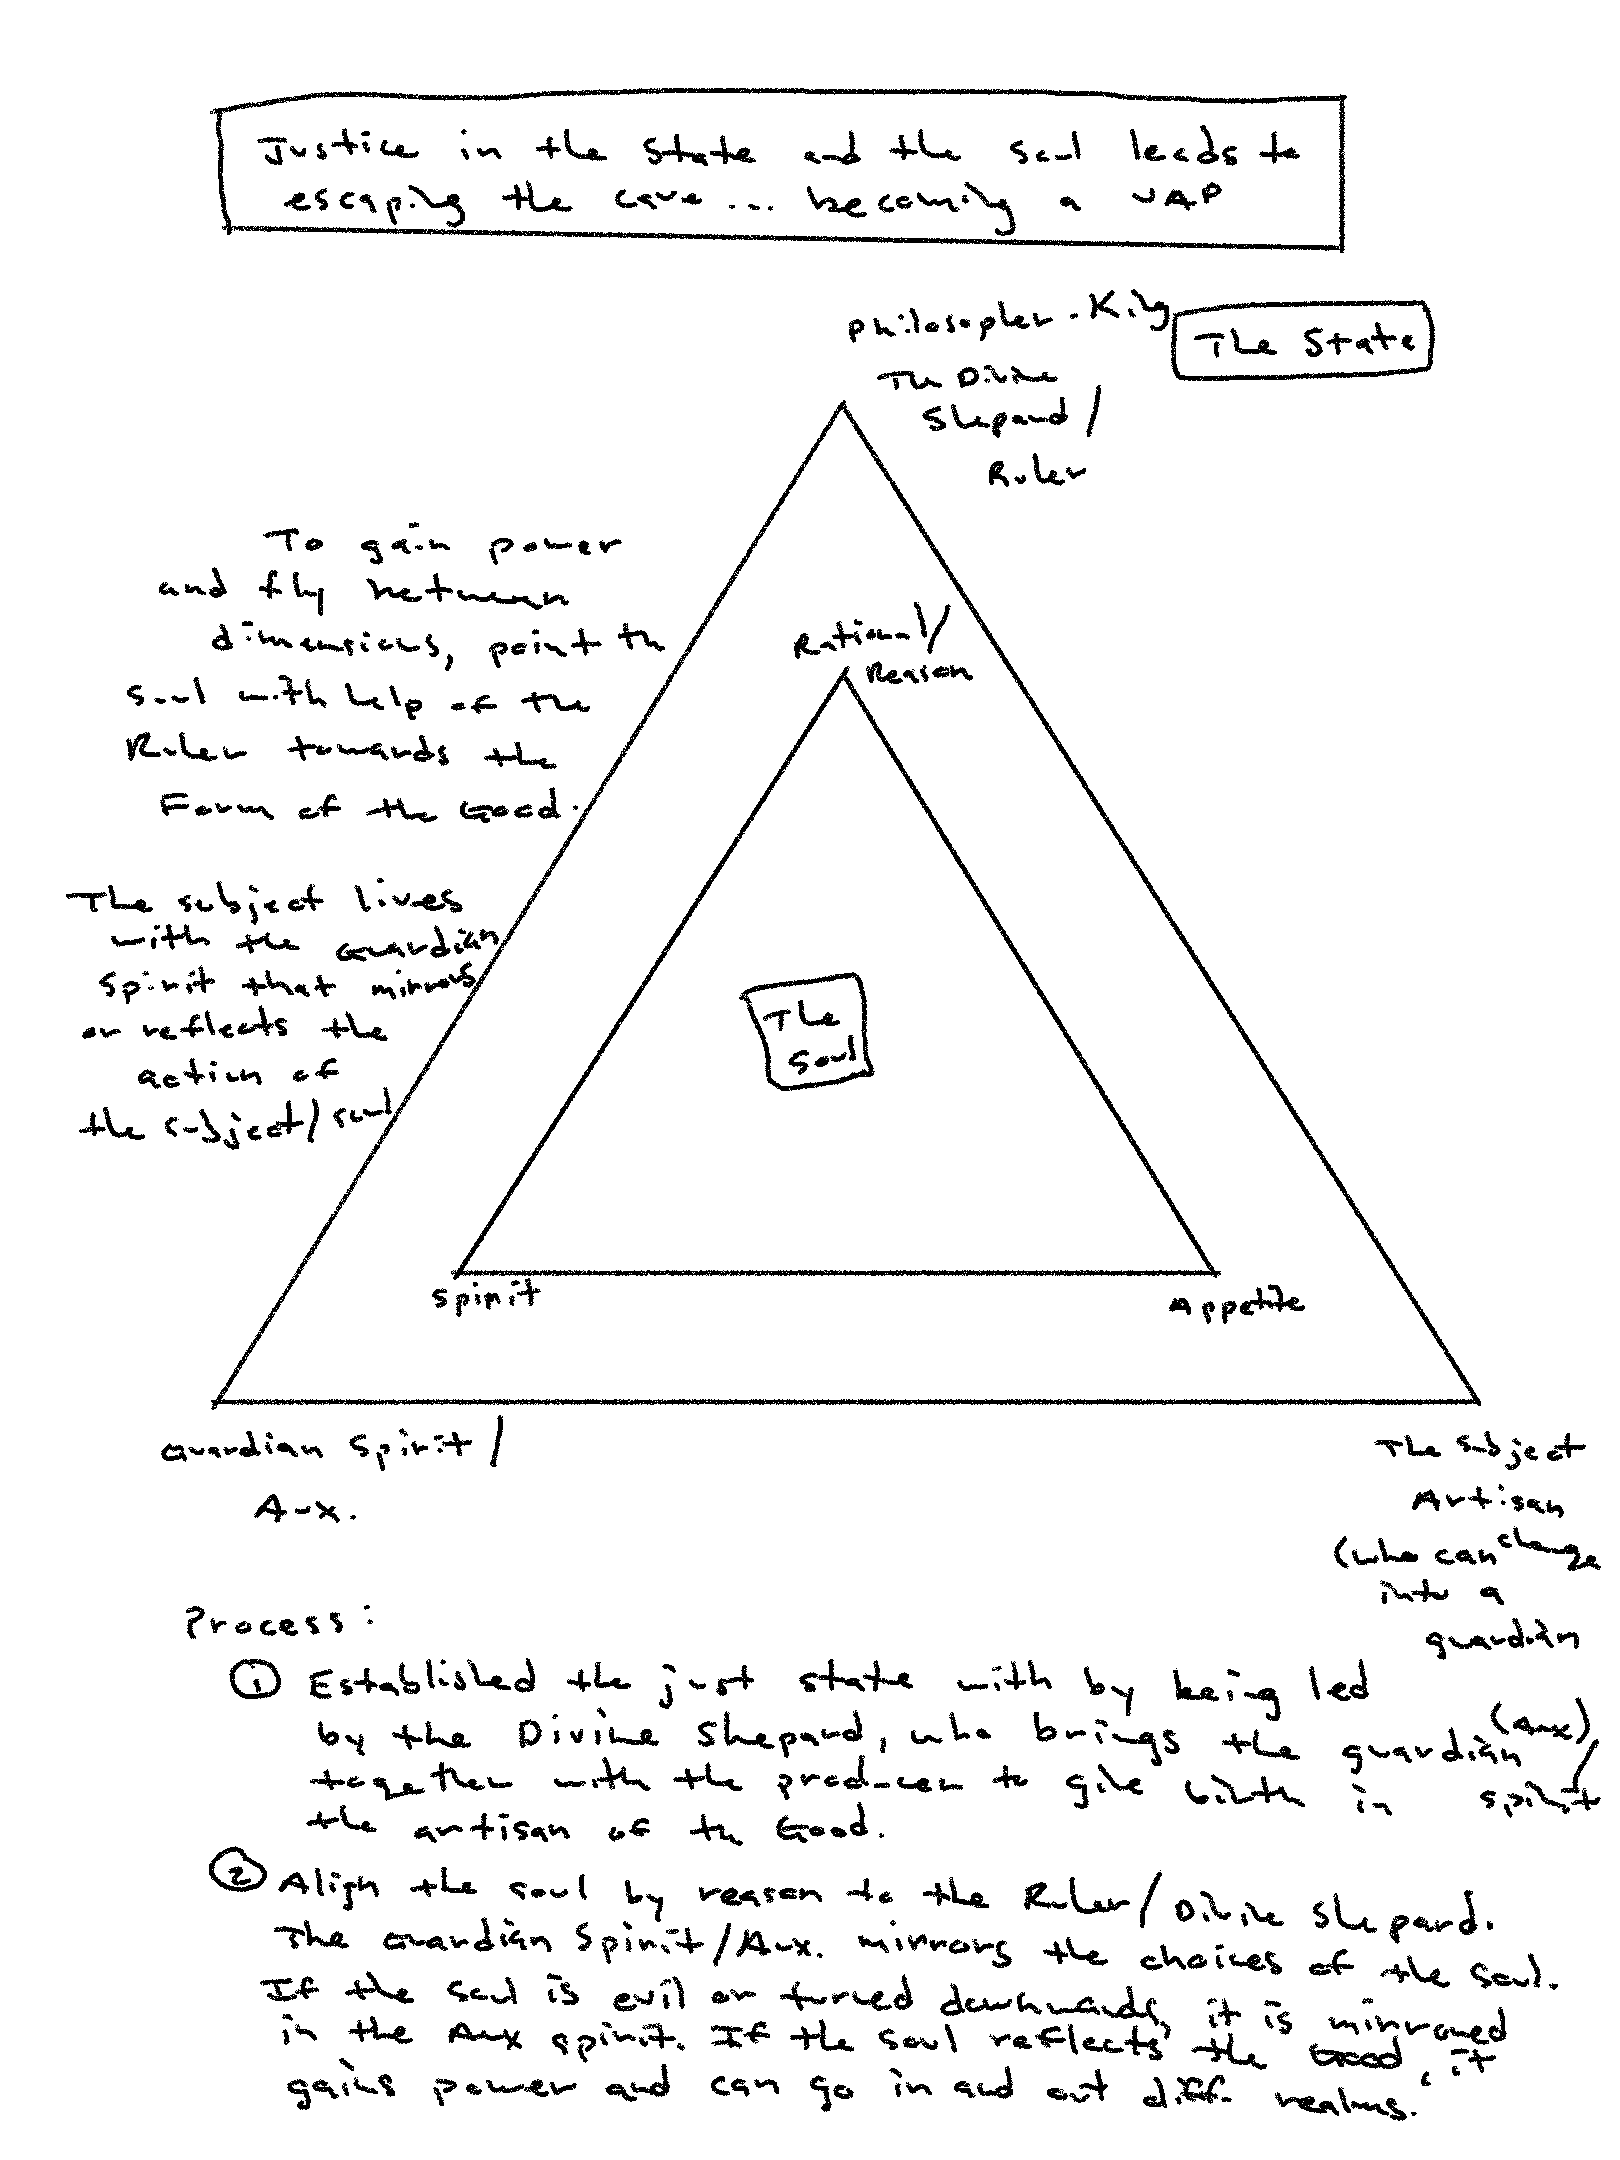 Justice in the State and the soul leads to
escaping the cave ... becoming a UAP
Philosopher-King
The State
The Divine
Shepard /
Ruler
To gain power
and fly between
dimensions, point the
soul with help of the
Ruler towards the
Form of the Good.
Rational/
Reason
The subject lives
with the Guardian
Spirit that mirrors
or reflects the
action of
the subject/soul
The
Soul
Spirit
Appetite
Guardian Spirit /
Aux.
The Subject
Artisan
(who can change
into a
guardian
Process:
① Established the just state with by being led
by the Divine Shepard, who brings the guardian (Aux) /
together with the producer to give birth in spirit
the artisan of the Good.
② Align the soul by reason to the Ruler/Divine Shepard.
The Guardian Spirit/Aux. mirrors the choices of the soul.
If the soul is evil or turned downwards, it is mirrored
in the Aux spirit. If the soul reflects the Good, it
gains power and can go in and out diff. realms.